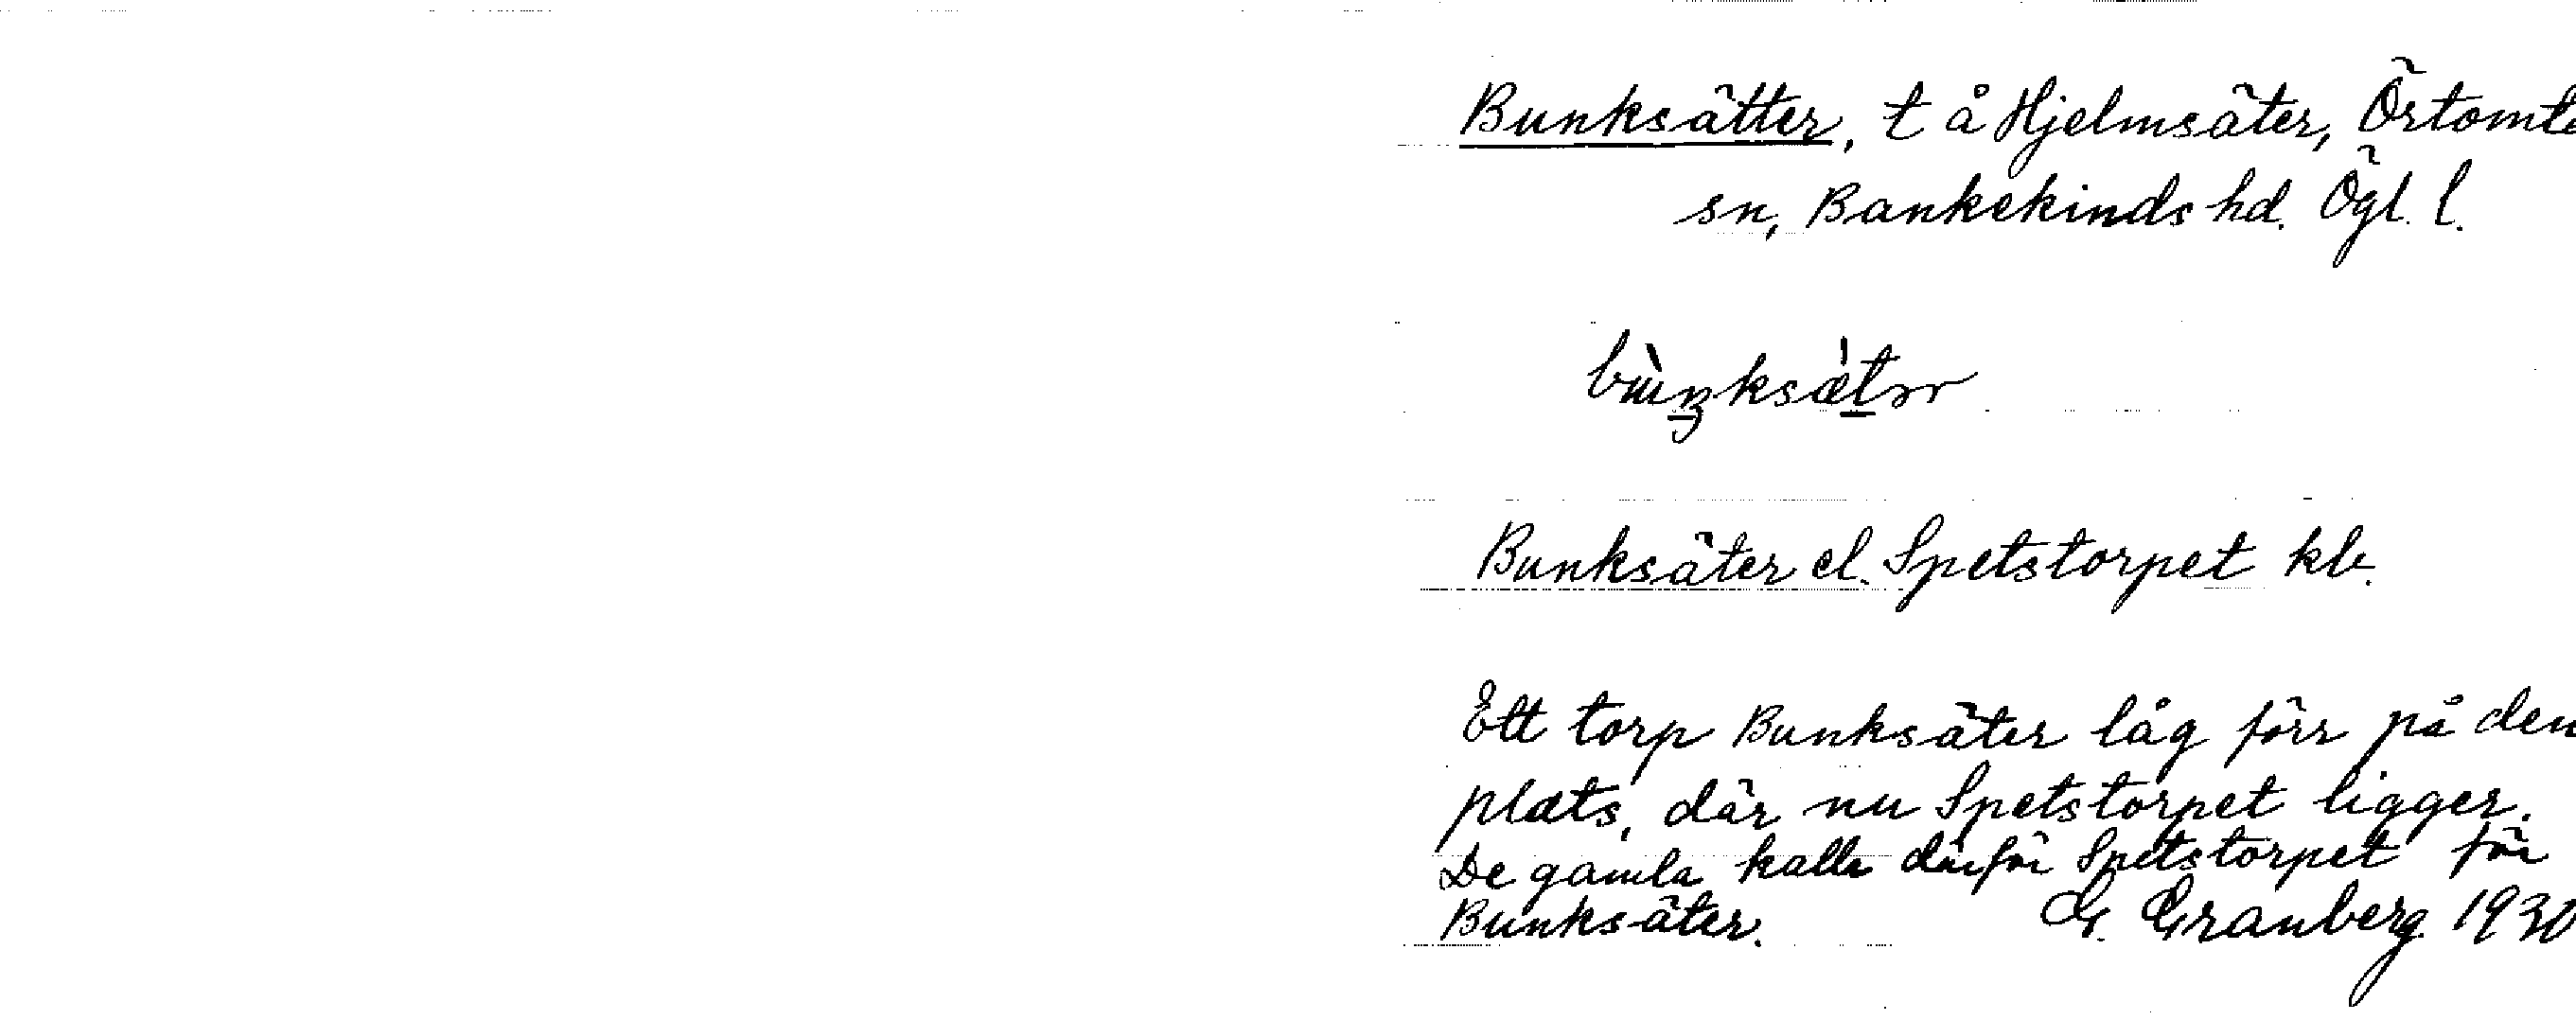 Bunksätter, t å Hjelmsäter, Örtomta
sn, Bankekinds hd. Ögl. l.
Bunksäter el. Spetstorpet kb.
Ett torp Bunksäter låg förr på den
plats, där nu Spetstorpet ligger.
De gamla kalla därför Spetstorpet för
Bunksäter. G. Granberg 1930